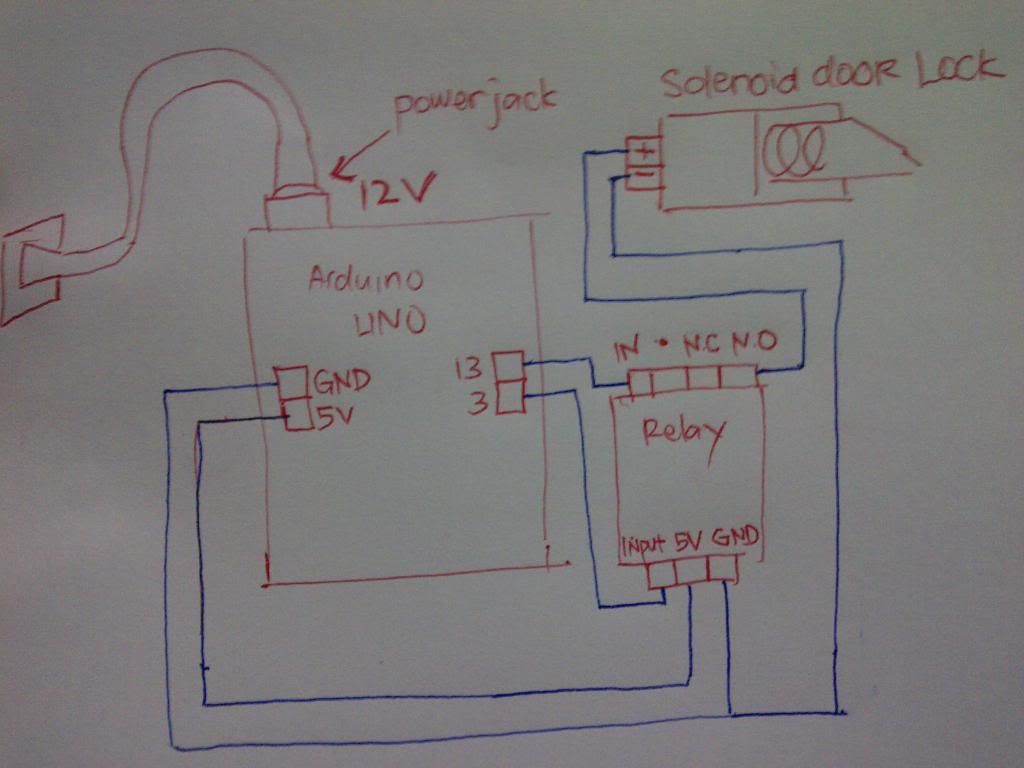 Solenoid door Lock
powerjack
12V
+
-
Arduino
UNO
IN • N.C N.O
13
GND
3
5V
Relay
Input 5V GND